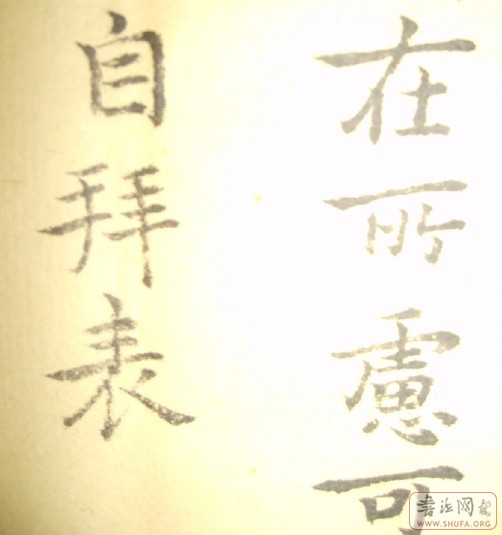 在所慮可
自拜表
书法网
WWW.SHUFA.ORG